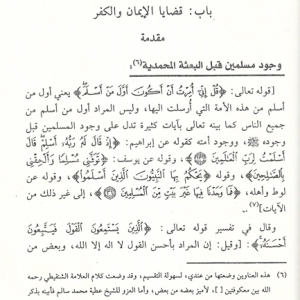 باب: قضايا الإيمان والكفر
مقدمة
وجود مسلمين قبل البعثة المحمدية(٦):
[قوله تعالى: ﴿قُلْ إِنِّي أُمِرْتُ أَنْ أَكُونَ أَوَّلَ مَنْ أَسْلَمَ﴾ يعني أول من
أسلم من هذه الأمة التي أرسلت اليها، وليس المراد أول من أسلم من
جميع الناس كما بينه تعالى بآيات كثيرة تدل على وجود المسلمين قبل
وجوده ﷺ، ووجود أمته كقوله عن إبراهيم: ﴿إِذْ قَالَ لَهُ رَبُّهُ أَسْلِمْ قَالَ
أَسْلَمْتُ لِرَبِّ الْعَالَمِينَ﴾، وقوله عن يوسف: ﴿تَوَفَّنِي مُسْلِمًا وَأَلْحِقْنِي
بِالصَّالِحِينَ﴾، وقوله: ﴿يَحْكُمُ بِهَا النَّبِيُّونَ الَّذِينَ أَسْلَمُوا﴾، وقوله عن
لوط وأهله: ﴿فَمَا وَجَدْنَا فِيهَا غَيْرَ بَيْتٍ مِنَ الْمُسْلِمِينَ﴾، إلى غير ذلك من
الآيات](٧).
وقال في تفسير قوله تعالى: ﴿الَّذِينَ يَسْتَمِعُونَ الْقَوْلَ فَيَتَّبِعُونَ
أَحْسَنَهُ﴾: [وقيل: إن المراد بأحسن القول لا اله إلا الله، وبعض من
(٦) هذه العناوين وضعتها من عندي، لسهولة التقسيم، وقد وضعت كلام العلامة الشنقيطي رحمه
الله بين معكوفتين [ ]، لأميز بعضه من بعض، وأما العزو للشيخ عطية محمد سالم فأبينه بذكر